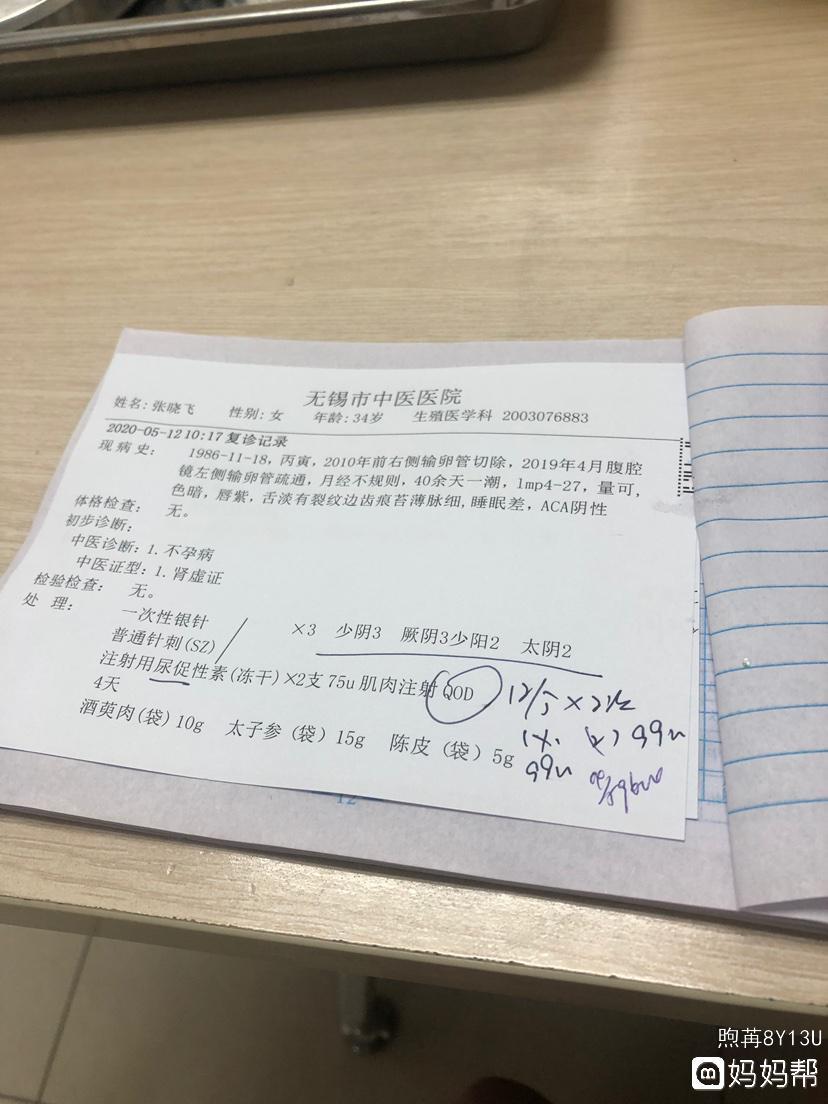 无锡市中医医院
姓名:张晓飞 性别:女 年龄:34岁 生殖医学科 2003076883
2020-05-12 10:17 复诊记录
现病史: 1986-11-18,丙寅,2010年前右侧输卵管切除,2019年4月腹腔
镜左侧输卵管疏通,月经不规则,40余天一潮,lmp4-27,量可,
色暗,唇紫,舌淡有裂纹边齿痕苔薄脉细,睡眠差,ACA阴性
体格检查: 无。
初步诊断:
中医诊断:1.不孕病
中医证型:1.肾虚证
检验检查: 无。
处 理: 一次性银针
普通针刺(SZ) ×3 少阴3 厥阴3少阳2 太阴2
注射用尿促性素(冻干)×2支 75u 肌肉注射 QOD
4天
酒萸肉(袋)10g 太子参(袋)15g 陈皮(袋)5g
12
煦苒8Y13U
妈妈帮